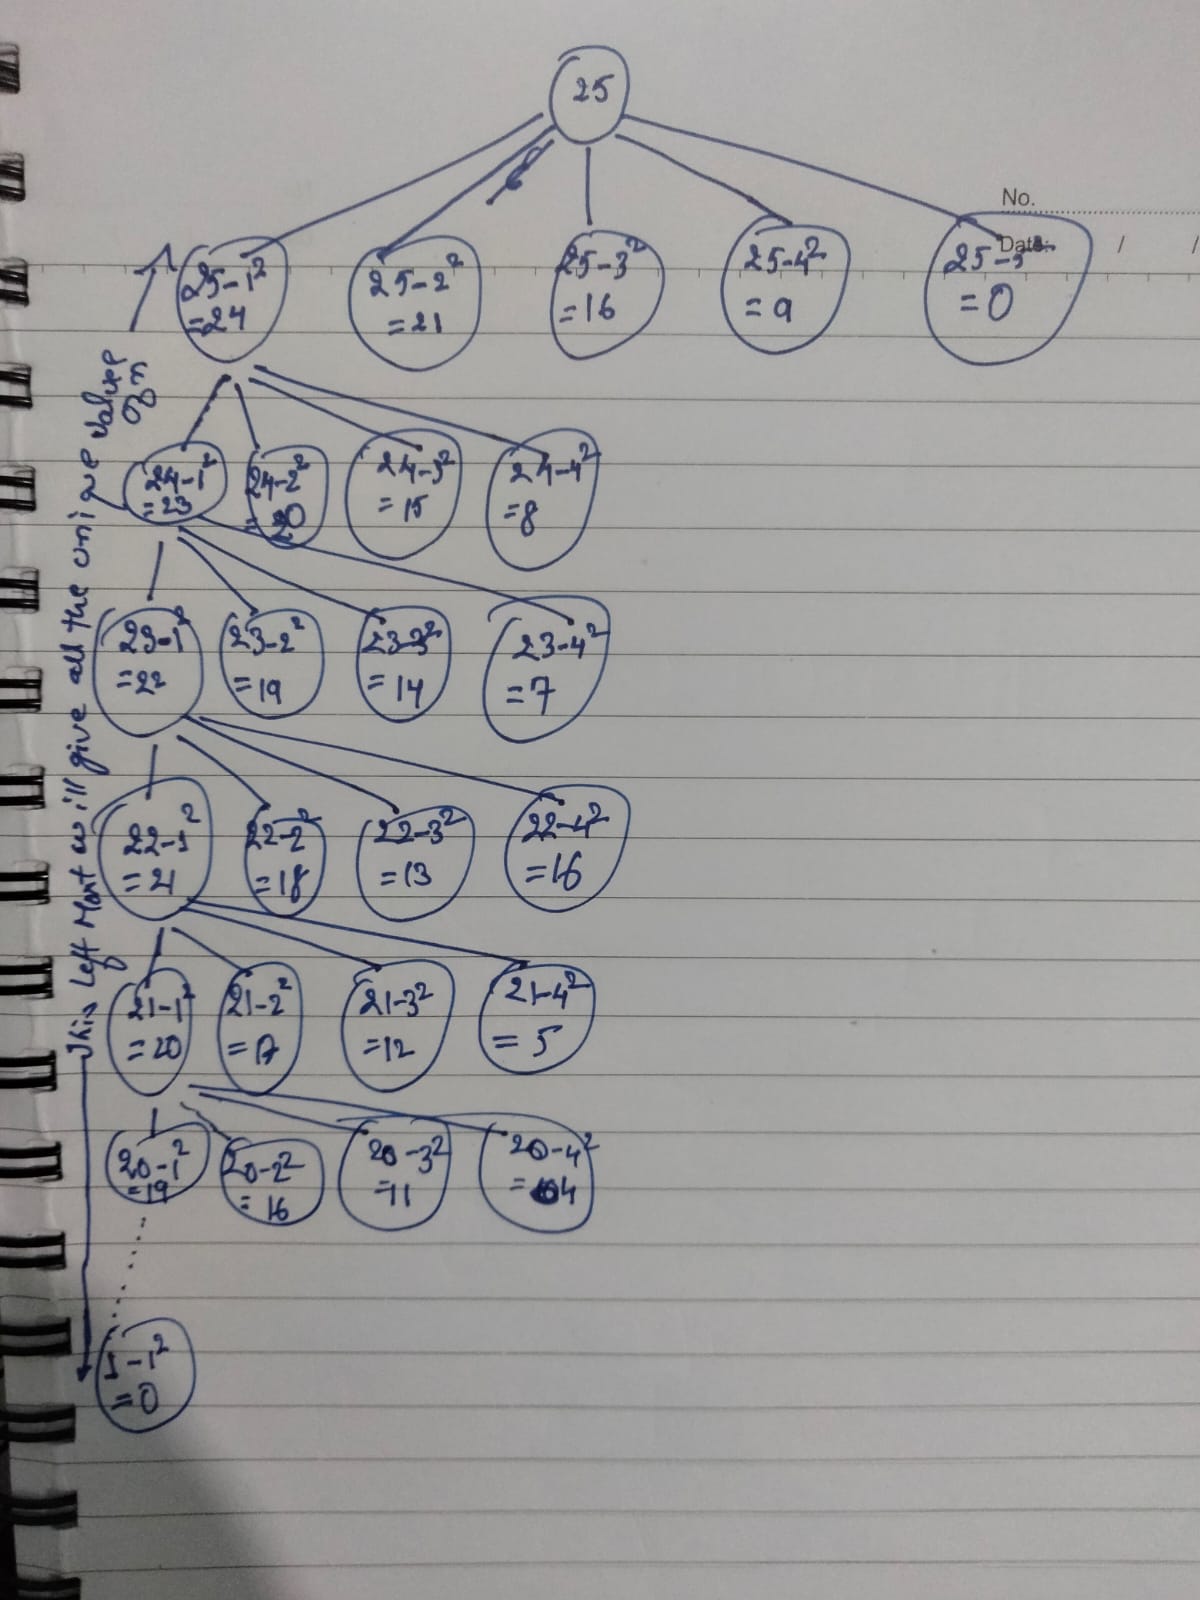 25
No.
Date: / /
25-1²
=24
25-2²
=21
25-3²
=16
25-4²
=9
25-5²
=0
24-1²
=23
24-2²
=20
24-3²
=15
24-4²
=8
23-1²
=22
23-2²
=19
23-3²
=14
23-4²
=7
22-1²
=21
22-2²
=18
22-3²
=13
22-4²
=16
21-1²
=20
21-2²
=17
21-3²
=12
21-4²
=5
20-1²
=19
20-2²
=16
20-3²
=11
20-4²
=4
1-1²
=0
This Left Most will give all the unique values